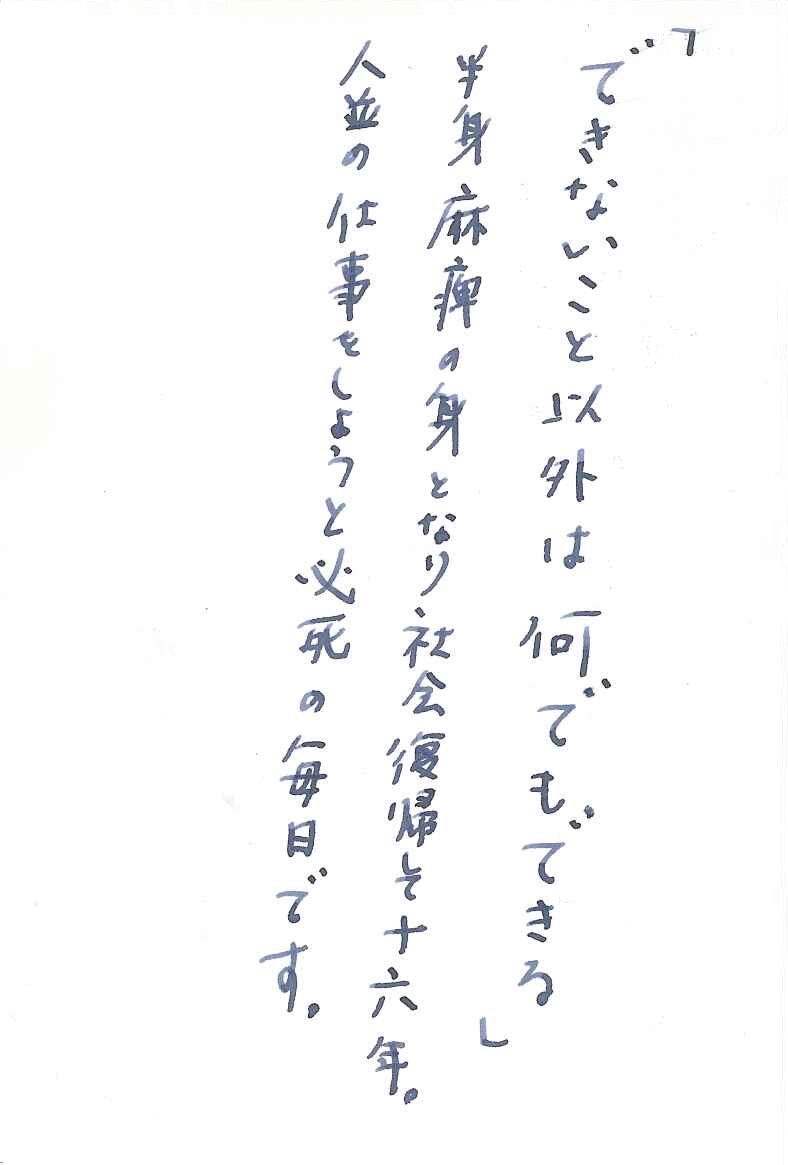 「できないこと以外は何でもできる」
半身麻痺の身となり社会復帰して十六年。
人並の仕事をしようと必死の毎日です。